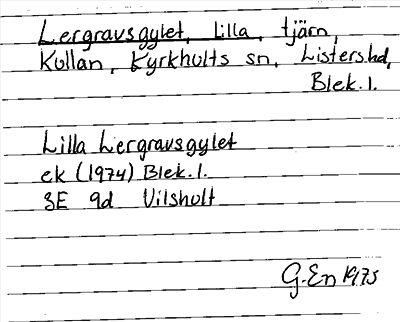 Lergravsgylet, Lilla, tjärn,
Kullan, Kyrkhults sn, Listers hd,
Blek. l.
Lilla Lergravsgylet
ek (1974) Blek. l.
3E 9d Vilshult
G. En 1975